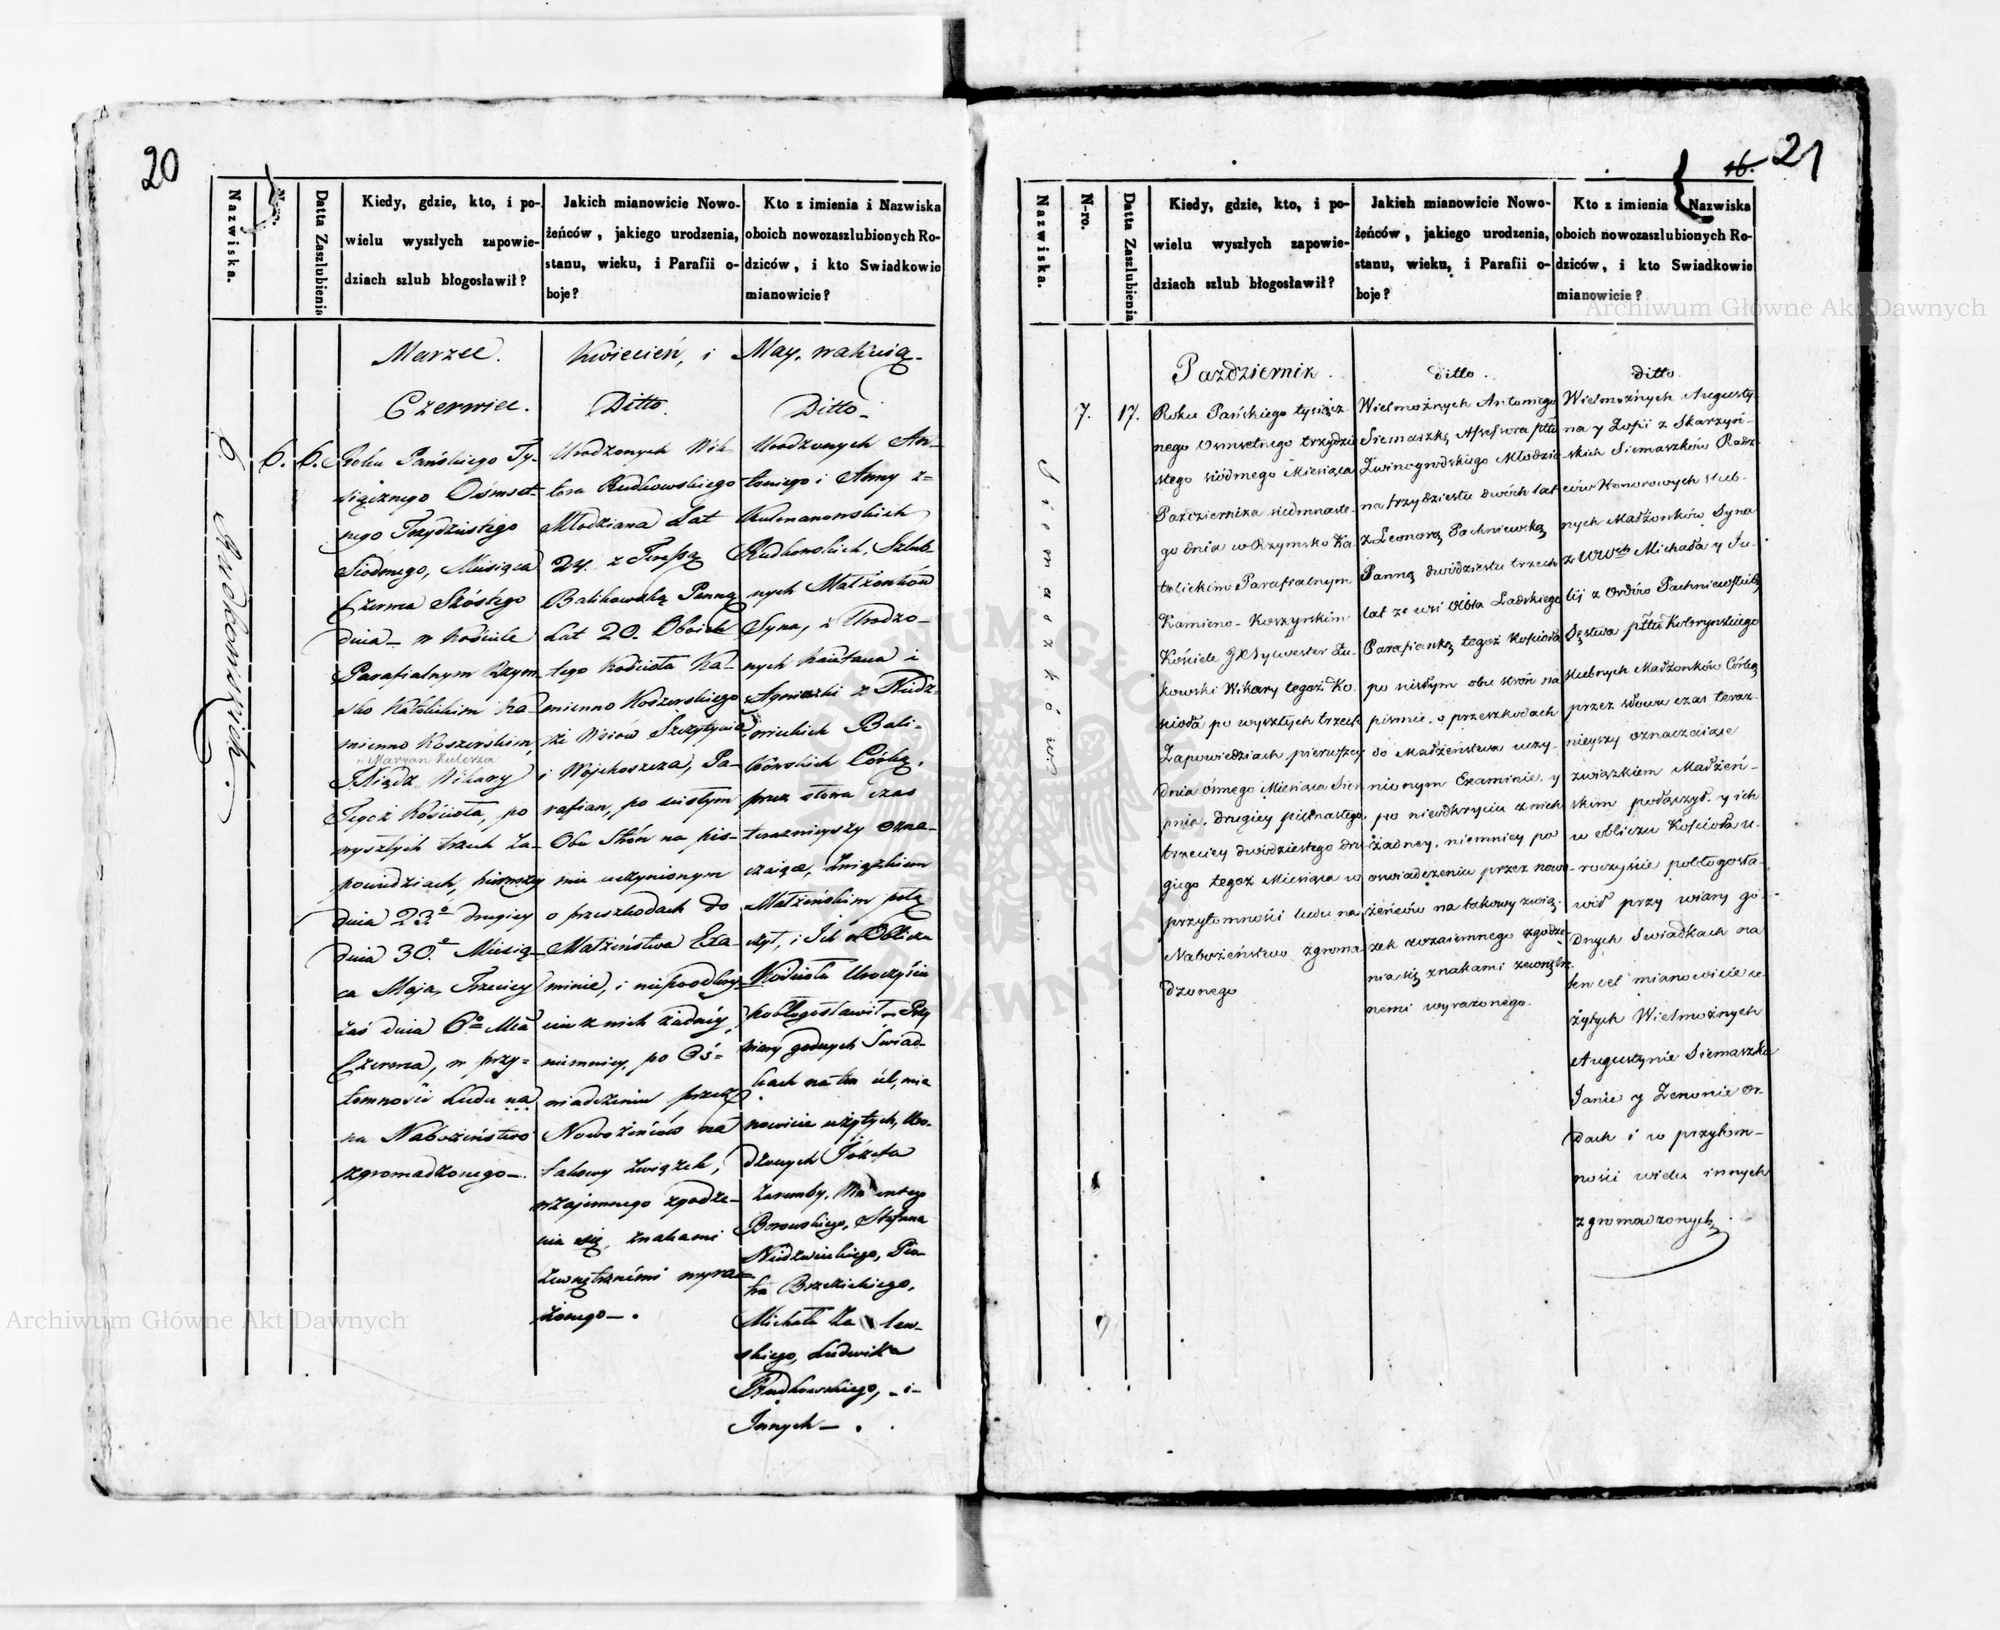 20
Nazwiska.
N-ro.
Datta Zaszlubienia
Kiedy, gdzie, kto, i po-
wielu wyszłych zapowie-
dziach szlub błogosławił?
Jakich mianowicie Nowo-
żeńców, jakiego urodzenia,
stanu, wieku, i Parafii o-
boje?
Kto z imienia i Nazwiska
oboich nowozaszlubionych Ro-
dziców, i kto Swiadkowie
mianowicie?
Marzec. Kwiecień, i May, wakuią.
Czerwiec. Ditto. Ditto.
6. Rudkowskich.
6.
6.
Roku Pańskiego Ty-
siącznego Ośmset-
nego Trzydziestego
Siodmego, Miesiąca
Czerwca Szóstego
dnia w Kościele
Parafialnym Rzym-
sko Katolickim Ka-
mienno Koszerskim,
Maryan Kulesza
Xiądz Wikary
Tegoż Kościoła, po
wyszłych trzech Za-
powiedziach, pierwszey
dnia 23º drugiey
dnia 30º Miesią-
ca Maja, Trzeciey
zaś dnia 6º Mca
Czerwca, w przy-
tomności Ludu na
na Nabożeństwo
zgromadzonego.
Urodzonych Wik-
tora Rudkowskiego
Młodziana Lat
24. z Teressą
Balikowską Panną
Lat 20. Oboich
tego Kościoła Ka-
mienno Koszerskiego
ze Wsiów Szczytyna
i Wojehoszcza, Pa-
rafian, po scisłym
Obu Strón na pis-
mie uczynionym
o przeszkodach do
Małżeństwa Exa-
minie, i niepoodkry-
ciu z nich żadnéy,
niemniey, po Oś-
wiadczeniu przez
Nowożeńców na
takowy związek,
wzajemnego zgodze-
nia się, znakami
zewnętrznémi wyra-
żonego.
Urodzonych An-
toniego i Anny z
Kulmanowskich
Rudkowskich, Szlub-
nych Małżonków
Syna, z Urodzo-
nych Kaietana i
Agnieszki z Niedz-
wieckich Bali-
kowskich Córką,
przez słowa czas
teraznieyszy ozna-
czaiące, Związkiem
Małżeńskim połą-
czył, i Ich w Obliczu
Kościoła Uroczyście
pobłogosławił. Przy
wiary godnych Świad-
kach na ten cel, mia-
nowicie użytych, Uro-
dzonych Józefa
Zaremby,
Borowskiego, Stefana
Niedzwieckiego, Pio-
tra Brzezickiego,
Michała
skiego, Ludwika
Rudkowskiego, i
Jnnych.
16. 21
Nazwiska.
N-ro.
Datta Zaszlubienia
Kiedy, gdzie, kto, i po-
wielu wyszłych zapowie-
dziach szlub błogosławił?
Jakich mianowicie Nowo-
żeńców, jakiego urodzenia,
stanu, wieku, i Parafii o-
boje?
Kto z imienia i Nazwiska
oboich nowozaszlubionych Ro-
dziców, i kto Swiadkowie
mianowicie?
Pazdziernik. ditto. ditto.
Siemaszków
7.
17.
Roku Pańskiego tysiącz-
nego Osmsetnego trzydzie-
stego siódmego Miesiąca
Pazdziernika siedmnaste-
go dnia w Rzymsko Ka-
tolickim Parafialnym
Kamieno-Koszyrskim
Kościele JX Sylwester Żu-
kowski Wikary tegoż Ko-
scioła po wyszłych trzech
Zapowiedziach pierwszey
dnia ósmego Miesiąca Sier-
pnia, drugiey pietnastego
trzeciey dwódziestego dru-
giego tegoż Miesiąca w
przytomności ludu na
Nabożeństwo zgroma-
dzonego
Wielmożnych Antoniego
Siemaszkę Assesora pttu
Zwinogrodskiego Młodzia-
na trzydziestu dwóch lat
z Leonorą Pachniewską
Panną dwódziestu trzech
lat ze wsi Olbla Ladskiego
Parafianką tegoż Kościoła
po scisłym obu stron na
pismie, o przeszkodach
do Madżeństwa uczy-
nionym Examinie, y
po nieodkryciu z nich
żadney, niemniey po
oswiadczeniu przez nowo-
żeńców na takowy zwią-
zek wzaiemnego zgodze-
nia się znakami zewnętrz-
nemi wyrażonego.
Wielmożnych Augusty-
na y Zofii z Skarzyń-
skich Siemaszków Radz-
ców Honorowych slub-
nych Madżonków Syna
z WWch Michała y Ju-
lij z Ordów Pachniewskich
Sęstwa pttu Kobrynskiego
slubnych Madżonków Córką
przez słowa czas teraz-
nieyszy oznaczaiące
związkiem Madżeń-
skim połączył, y ich
w obliczu Kościoła u-
roczyście pobłogosła-
wił przy wiary go-
dnych swiadkach na
ten cel mianowicie u-
żytych Wielmożnych
Augustynie Siemaszku
Janie y Zenonie Or-
dach i w przytom-
ności wielu innych
zgromadzonych.
Archiwum Główne Akt Dawnych
Archiwum Główne Akt Dawnych